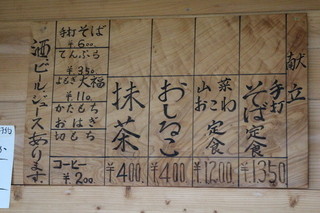 献立
手打
そば定食
¥1350
菜わ
山おこ
定食
¥1200
おしるこ
¥400
抹茶
¥400
手打そば
¥600
てんぷら
¥350
よもぎ大福
¥110
かたもち
おはぎ
切もち
コーヒー
¥200
酒、ビール、ジュースあります